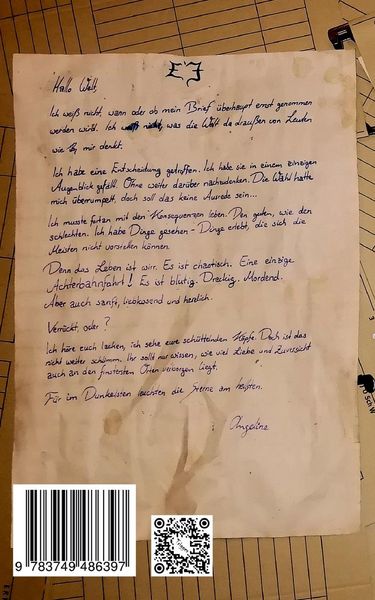 EJ
Hallo Welt,
Ich weiß nicht, wann oder ob mein Brief überhaupt ernst genommen
werden wird. Ich weiß nicht, was die Welt da draußen von Leuten
wie mir denkt.
Ich habe eine Entscheidung getroffen. Ich habe sie in einem einzigen
Augenblick gefällt. Ohne weiter darüber nachzudenken. Die Wahl hatte
mich überrumpelt, doch soll das keine Ausrede sein...
Ich musste fortan mit den Konsequenzen leben. Den guten, wie den
schlechten. Ich habe Dinge gesehen - Dinge erlebt, die sich die
Meisten nicht vorstellen können.
Denn das Leben ist wirr. Es ist chaotisch. Eine einzige
Achterbahnfahrt! Es ist blutig. Dreckig. Mordend.
Aber auch sanft, liebkosend und herrlich.
Verrückt, oder?
Ich höre euch lachen, ich sehe eure schüttelnden Köpfe. Doch ist das
nicht weiter schlimm. Ihr sollt nur wissen, wie viel Liebe und Zuversicht
auch an den finstersten Orten verborgen liegt.
Für im Dunkelsten leuchten die Sterne am hellsten.
Angelina
9 783749 486397